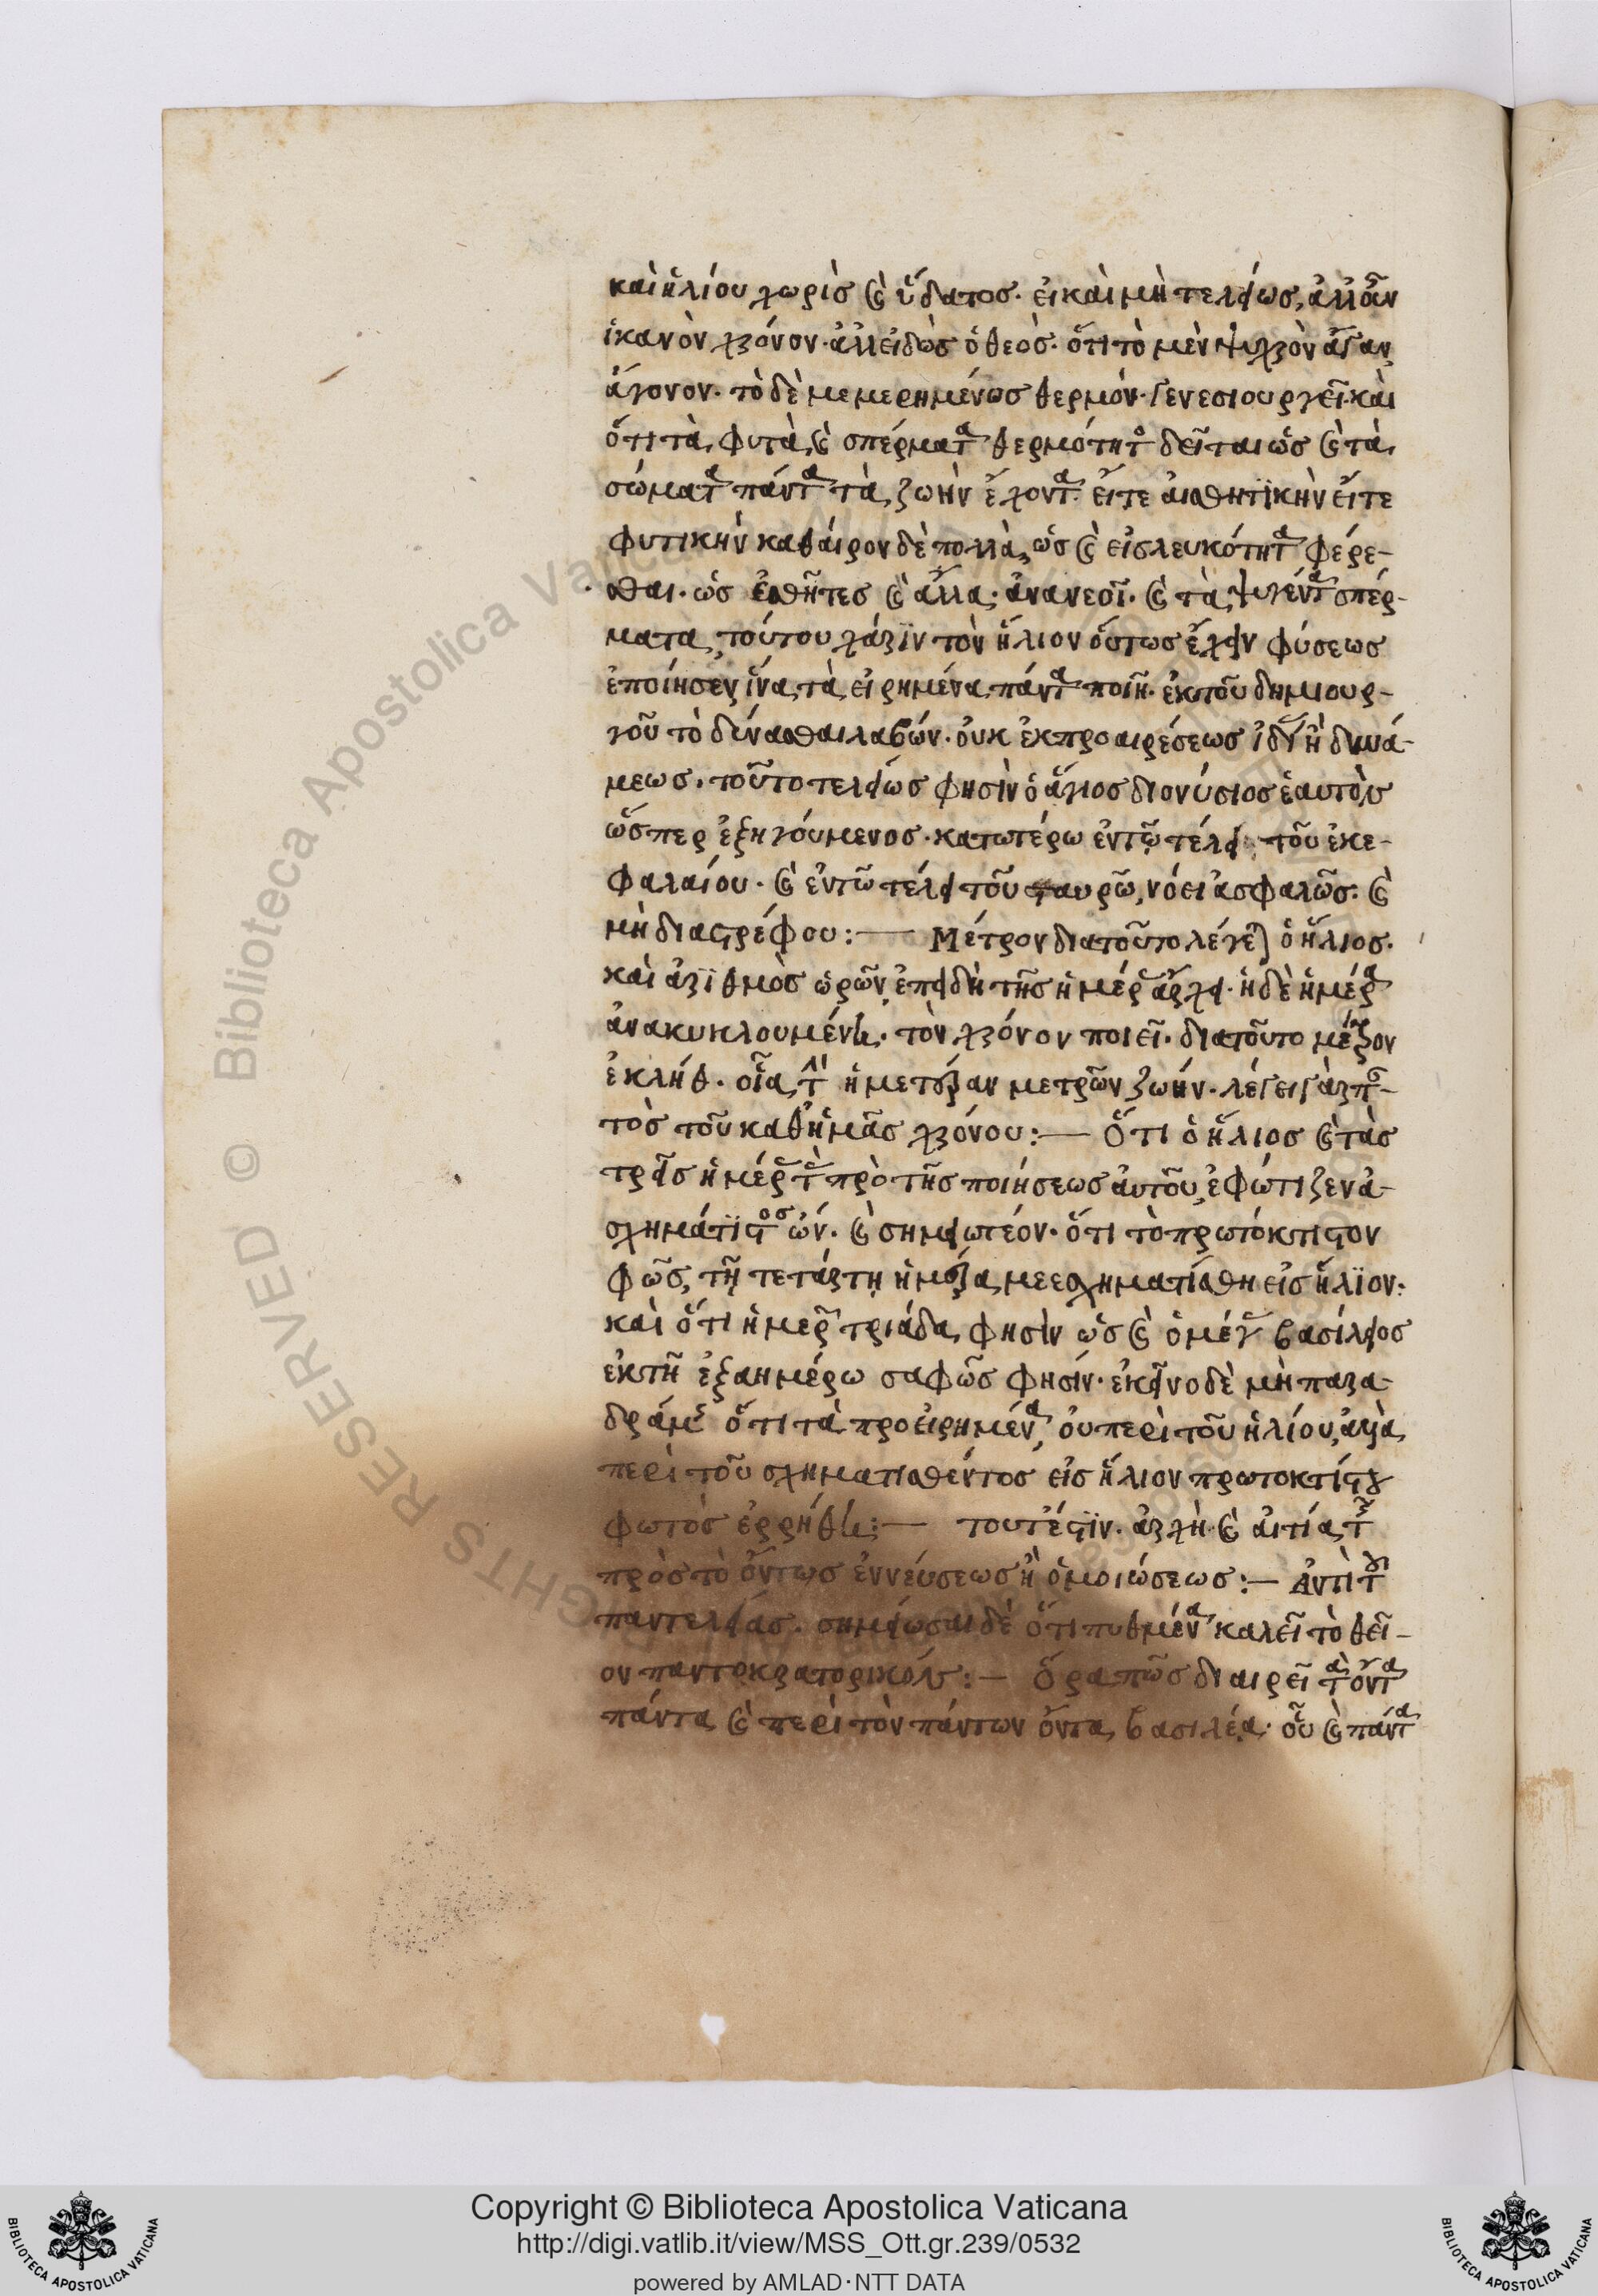 καὶ ἡλίου χωρὶς καὶ ὕδατος. εἰ καὶ μὴ τελείως, ἀλλ' οὖν
ἱκανὸν χρόνον. ἀλλ' εἰδὼς ὁ θεὸς. ὅτι τὸ μὲν ψυχρὸν ἄγαν
ἄγονον. τὸ δὲ μεμερημένως θερμόν. γενεσιουργεῖ. καὶ
ὅτι τὰ φυτὰ, καὶ σπέρματα θερμότητος δεῖται ὡς καὶ τὰ
σώματα πάντα τὰ ζωὴν ἔχοντα. εἴτε αἰσθητικὴν εἴτε
φυτικήν καθαίρον δὲ πολλὰ, ὡς καὶ εἰς λευκότητα φέρε-
σθαι. ὡς ἐσθῆτες καὶ ἄλλα. ἀνανεοῖ. καὶ τὰ ψυγέντα σπέρ-
ματα τούτου χάριν τὸν ἥλιον οὕτως ἔχειν φύσεως
ἐποίησεν ἵνα τὰ εἰρημένα πάντα ποιῆ. ἐκ τοῦ δημιουρ-
γοῦ τὸ δύνασθαι λαβών. οὐκ ἐκ προαιρέσεως ἰδίας ἢ δυνά-
μεως. τοῦτο τελείως φησὶν ὁ ἅγιος διονύσιος ἑαυτὸν
ὥσπερ ἐξηγούμενος. κατωτέρω ἐν τῷ τέλει τοῦ ε κε-
φαλαίου. καὶ ἐν τῶ τέλει τοῦ παρῶ, νόει ἀσφαλῶς. καὶ
μὴ διαστρέφου:— Μέτρον διατοῦτο λέγεται ὁ ἥλιος.
καὶ ἀριθμὸς ὡρῶν, ἐπειδὴ τῆς ἡμέρας ἄρχει. ἡ δὲ ἡμέρα
ἀνακυκλουμένη. τὸν χρόνον ποιεῖ. διατοῦτο μέτρον
ἐκλήθη. οἷα τὴν ἡμετέραν μετρῶν ζωήν. λέγει γὰρ περὶ
τὸς τοῦ καθ' ἡμᾶς χρόνου:— Ὅτι ὁ ἥλιος καὶ τὰς
τρεῖς ἡμέρας τὰς πρὸ τῆς ποιήσεως αὐτοῦ, ἐφώτιζεν ἀ-
σχημάτιστος ὤν. καὶ σημειωτέον. ὅτι τὸ πρωτόκτιστον
φῶς, τῆ τετάρτη ἡμέρα μεσχηματίσθη εἰς ἥλιον.
καὶ ὅτι ἡμερῶν τριάδα φησὶν ὡς καὶ ὁ μέγας βασίλειος
ἐκ τῆ ἐξαημέρω σαφῶς φησίν. ἐκεῖνο δὲ μὴ παρα-
δράμης ὅτι τὰ προειρημένα, οὐ περὶ τοῦ ἡλίου, ἀλλὰ
περὶ τοῦ σχηματισθέντος εἰς ἥλιον πρωτοκτίστου
φωτὸς ἐρρήθη:— τουτέστιν. ἀρχὴ καὶ αἰτία τῆς
πρὸς τὸ ὄντως ἐννεύσεως ἢ ὁμοιώσεως:— Ἀντὶ τοῦ
παντελείας. σημείωσαι δὲ ὅτι πυθμένα καλεῖ τὸ θεῖ-
ον παντοκρατορικόν:— Ὅρα πῶς διαιρεῖ τὰ ὄντα
πάντα καὶ περὶ τὸν πάντων ὄντα βασιλέα. οὗ καὶ πάντα
Copyright © Biblioteca Apostolica Vaticana
http://digi.vatlib.it/view/MSS_Ott.gr.239/0532
powered by AMLAD·NTT DATA